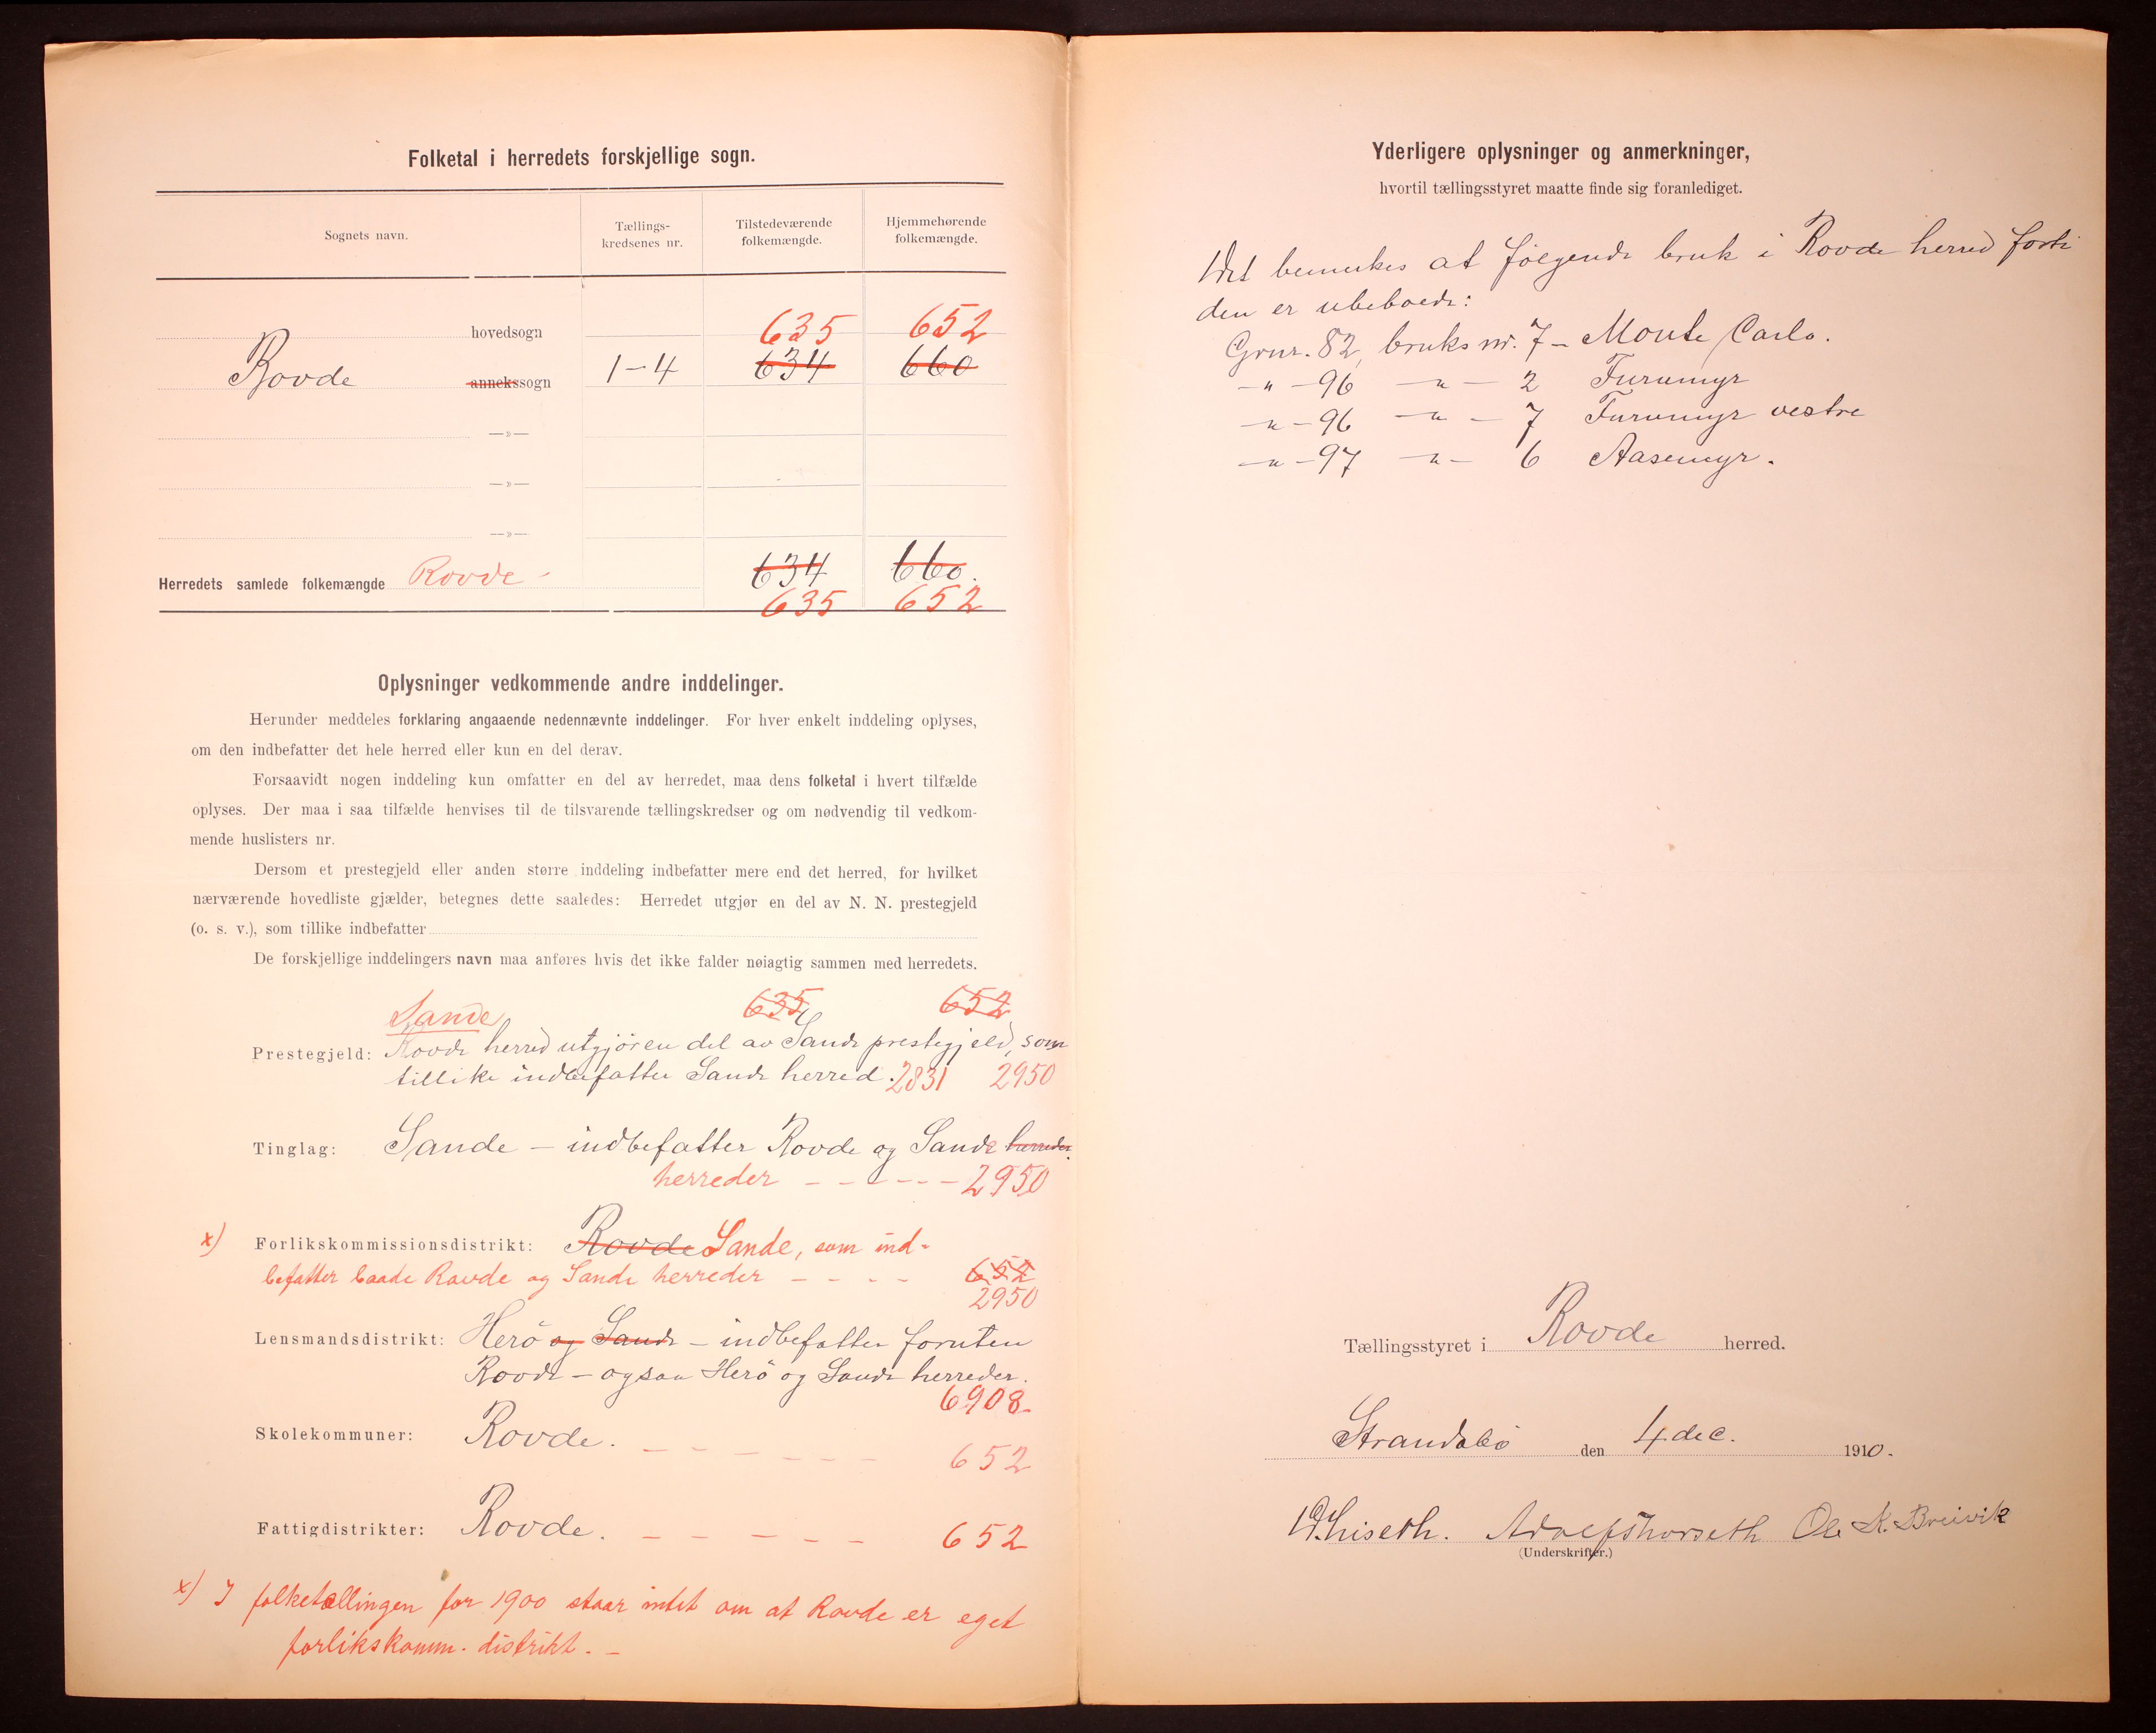 Folketal i herredets forskjellige sogn.
Sognets navn.
Tællings-
kredsenes nr.
Tilstedeværende
folkemængde.
Hjemmehørende
folkemængde.
hovedsogn 635 652
Rovde annekssogn 1-4 634 660
—»—
—»—
—»—
Herredets samlede folkemængde Rovde - 634 660.
635 652
Oplysninger vedkommende andre inddelinger.
Herunder meddeles forklaring angaaende nedennævnte inddelinger. For hver enkelt inddeling oplyses,
om den indbefatter det hele herred eller kun en del derav.
Forsaavidt nogen inddeling kun omfatter en del av herredet, maa dens folketal i hvert tilfælde
oplyses. Der maa i saa tilfælde henvises til de tilsvarende tællingskredser og om nødvendig til vedkom-
mende huslisters nr.
Dersom et prestegjeld eller anden større inddeling indbefatter mere end det herred, for hvilket
nærværende hovedliste gjælder, betegnes dette saaledes: Herredet utgjør en del av N. N. prestegjeld
(o. s. v.), som tillike indbefatter
De forskjellige inddelingers navn maa anføres hvis det ikke falder nøiagtig sammen med herredets.
Sande 635 652
Prestegjeld: Rovde herred utgjør en del av Sande prestegjeld, som
tillike indbefatter Sande herred. 2831 2950
Tinglag: Sande — indbefatter Rovde og Sande herreder.
herreder - - - - - - 2950
x) Forlikskommissionsdistrikt: Rovde Sande, som ind-
befatter baade Rovde og Sande herreder - - - - 652
2950
Lensmandsdistrikt: Herö og Sande - indbefatter foruten
Rovde - ogsaa Herö og Sande herreder.
6908-
Skolekommuner: Rovde. - - - - - - 652
Fattigdistrikter: Rovde. - - - - - 652
x) I folketællingen for 1900 staar intet om at Rovde er eget
forlikskomm. distrikt. -
Yderligere oplysninger og anmerkninger,
hvortil tællingsstyret maatte finde sig foranlediget.
Det bemerkes at følgende bruk i Rovde herred forti
den er ubeboede:
Grnr. 82, bruksnr. 7 - Monte Carlo.
-"- 96 -"- 2 Furumyr
-"- 96 -"- 7 Furumyr vestre
-"- 97 -"- 6 Aasemyr.
Tællingsstyret i Rovde herred.
Strandabö den 4 dec. 1910.
Adolf Thorseth Ole K. Breivik
(Underskrifter.)